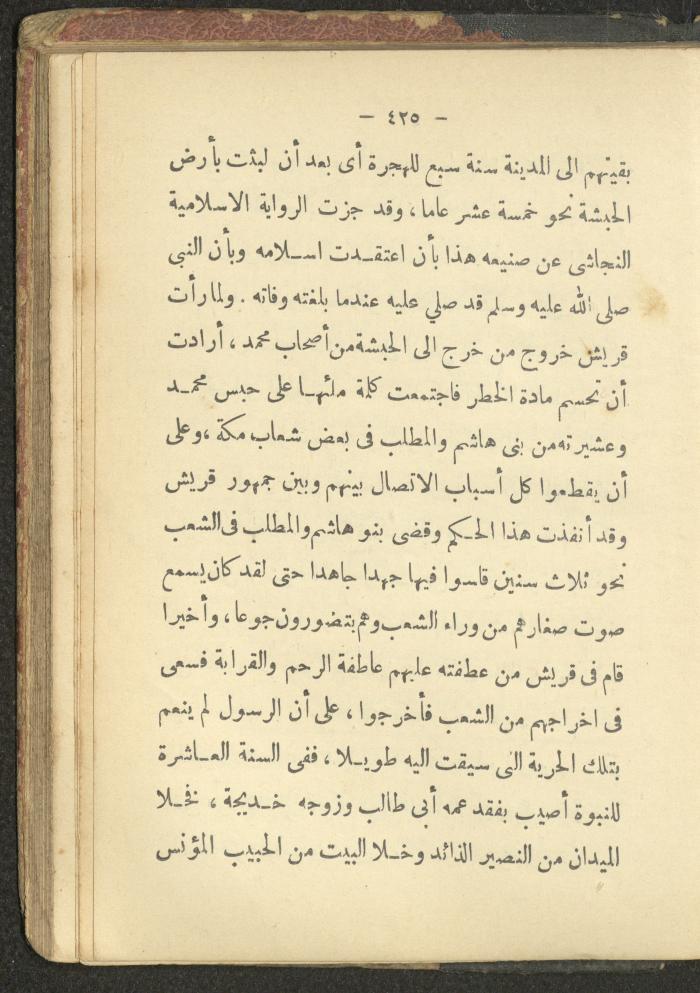 — ٤٢٥ —
بقيتهم الى المدينة سنة سبع للهجرة أى بعد أن لبثت بأرض
الحبشة نحو خمسة عشر عاما، وقد جزت الرواية الاسلامية
النجاشى عن صنيعه هذا بأن اعتقـدت اسـلامه وبأن النبي
صلى الله عليه وسلم قد صلي عليه عندما بلغته وفاته . ولما رأت
قريش خروج من خرج الى الحبشة من أصحاب محمد ، أرادت
أن تحسم مادة الخطر فاجتمعت كلمة ملئهـا على حبس محمـد
وعشيرته من بنى هاشم والمطلب فى بعض شعاب مكة ، وعلى
أن يقطعوا كل أسباب الاتصال بينهم وبين جمهور قريش
وقد أنفذت هذا الحـكم وقضى بنو هاشم والمطلب فى الشعب
نحو ثلاث سنين قاسوا فيها جهدا جاهدا حتى لقد كان يسمع
صوت صغارهم من وراء الشعب وهم يتضورون جوعا، وأخيرا
قام فى قريش من عطفته عليهم عاطفة الرحم والقرابة فسعى
فى اخراجهم من الشعب فأخرجوا ، على أن الرسول لم ينعم
بتلك الحرية التى سيقت اليه طويـلا ، ففى السنة العـاشرة
للنبوة أصيب بفقد عمه أبى طالب وزوجه خـديجة ، نخـلا
الميدان من النصير الذائد وخـلا البيت من الحبيب المؤنس